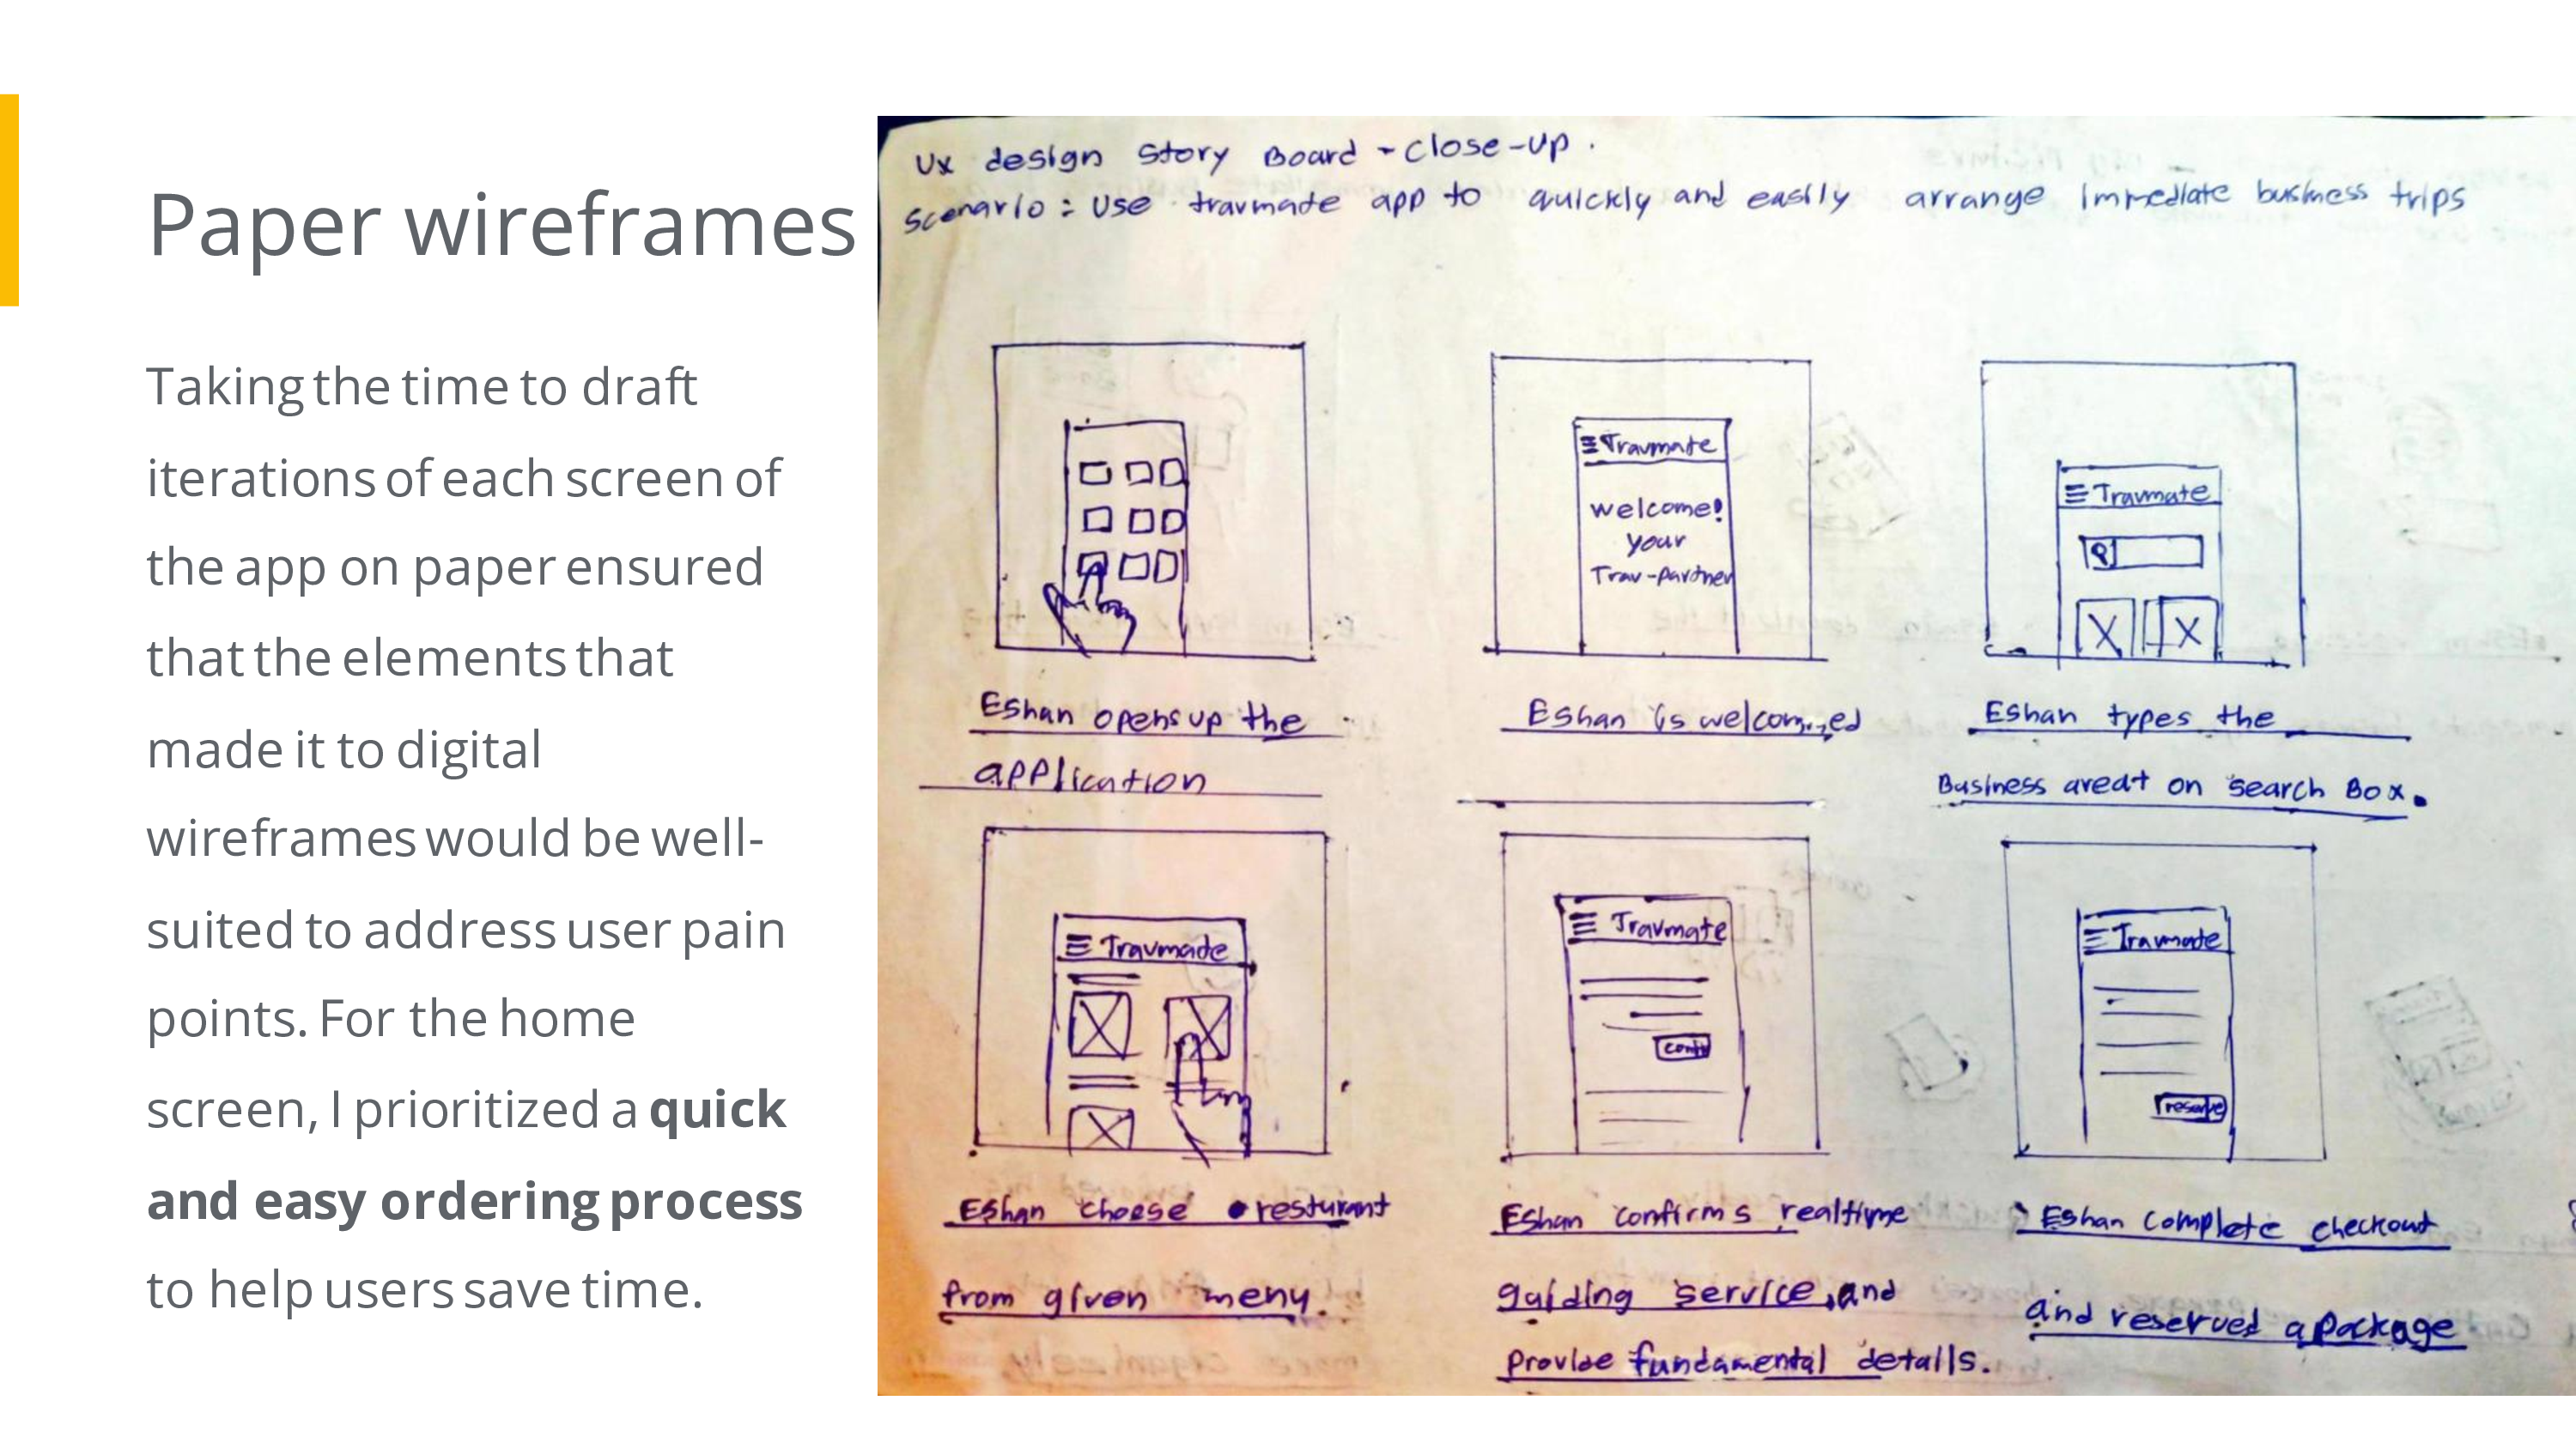 Paper wireframes
Taking the time to draft
iterations of each screen of
the app on paper ensured
that the elements that
made it to digital
wireframes would be well-
suited to address user pain
points. For the home
screen, I prioritized a quick
and easy ordering process
to help users save time.
Ux design Story Board - Close-up.
Scenario : Use travmade app to quickly and easily arrange immediate business trips
Travmate
welcome!
your
Trav-Partner
Travmate
Eshan opens up the
application
Eshan is welcommed
Eshan types the
Business areat on search Box.
Travmade
Travmate
Travmade
reserve
Eshan choose resturant
from given meny.
Eshan confirms realtime
guiding service, and
Provide fundamental details.
Eshan complete checkout
and reserved a package